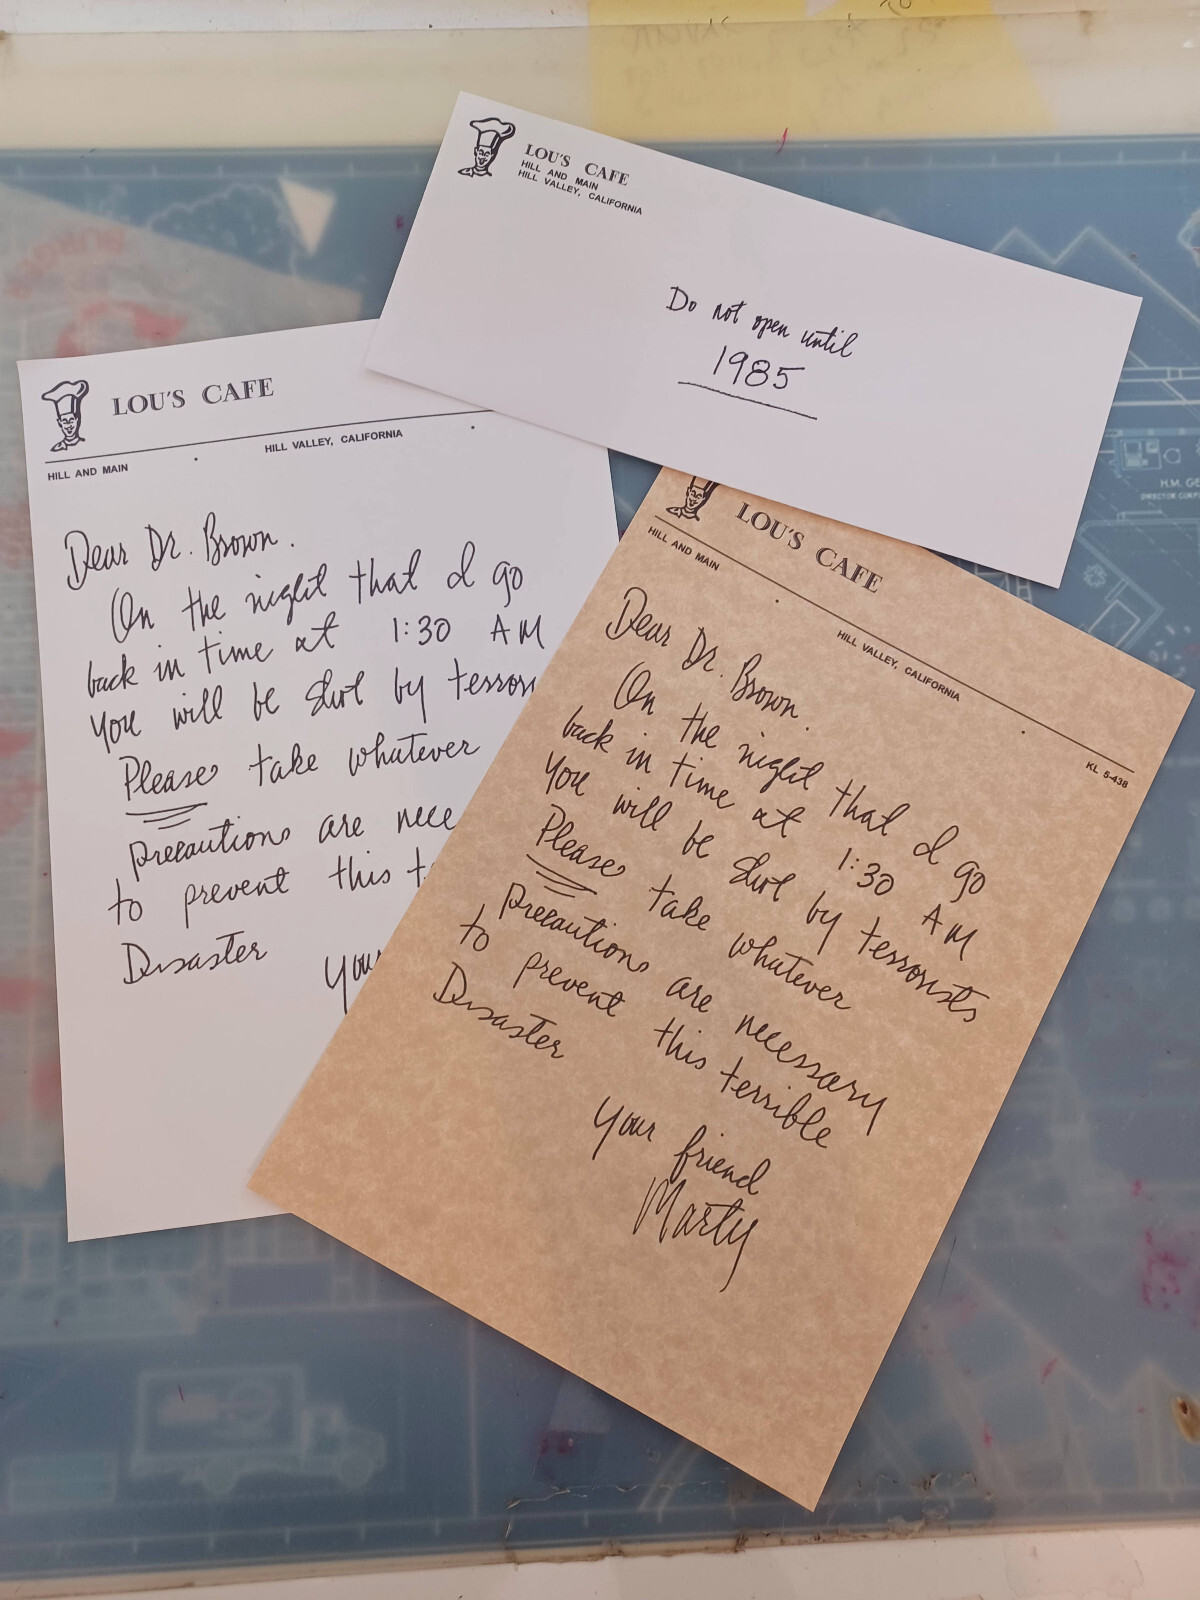 LOU'S CAFE
HILL AND MAIN
HILL VALLEY, CALIFORNIA
Do not open until
1985
LOU'S CAFE
HILL VALLEY, CALIFORNIA
HILL AND MAIN
Dear Dr. Brown.
On the night that I go
back in time at 1:30 AM
you will be shot by terroris
Please take whatever
precautions are nece
to prevent this t
Disaster
You
LOU'S CAFE
HILL AND MAIN
HILL VALLEY, CALIFORNIA
KL 5-438
Dear Dr. Brown.
On the night that I go
back in time at 1:30 AM
you will be shot by terrorists
Please take whatever
precautions are necessary
to prevent this terrible
Disaster
Your friend
Marty
H.M. GE